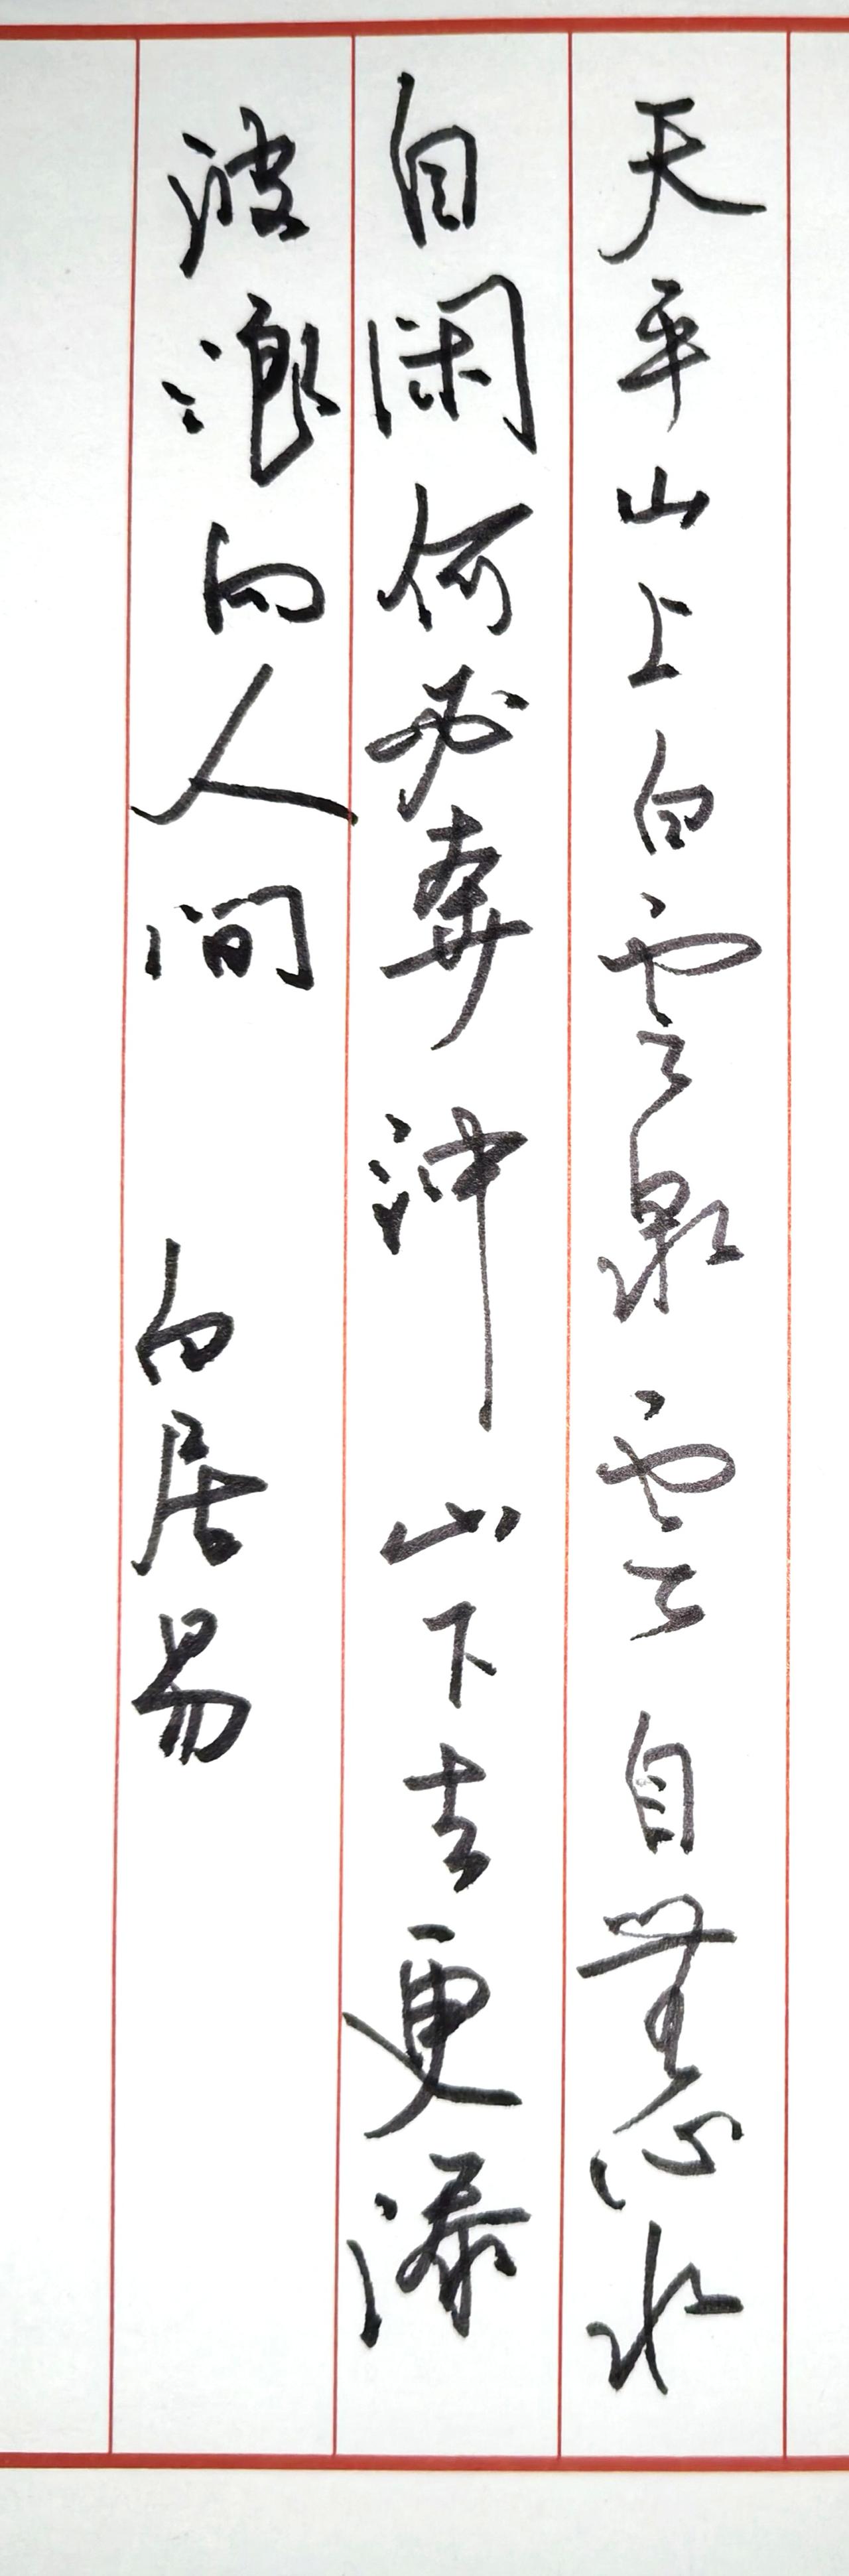 天平山上白雲泉雲自無心水
自閑何必奔沖山下去更添
波浪向人間 白居易